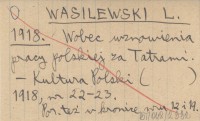 WASILEWSKI L.
1918. Wobec wznowienia
pracy polskiej za Tatrami.
– Kultura Polski ( )
1918, nr. 22-23.
Por. też w kronice nr. 12 i 19.